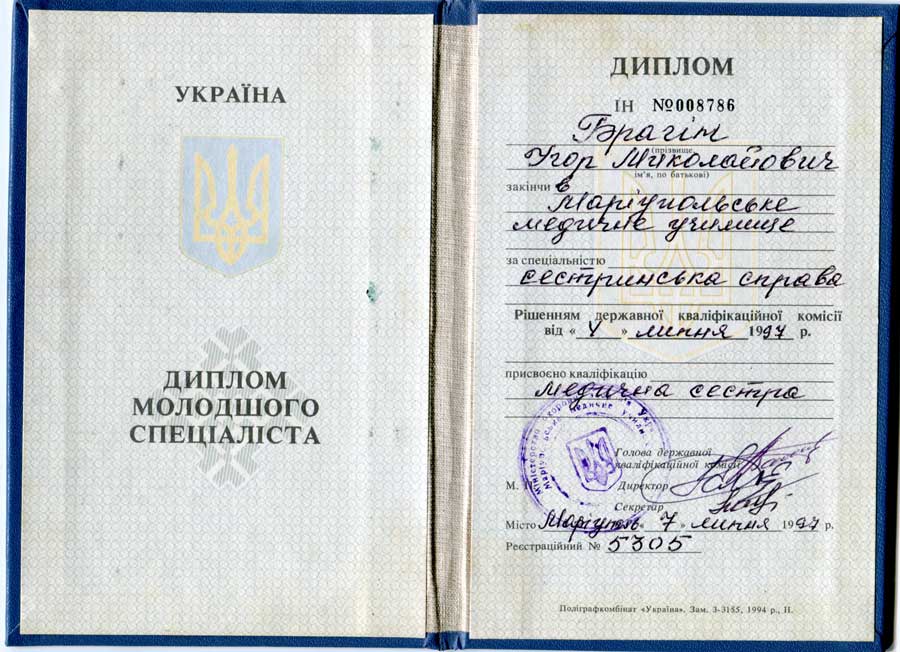 УКРАЇНА
ДИПЛОМ
МОЛОДШОГО
СПЕЦІАЛІСТА
ДИПЛОМ
ІН №008786
Брагін
(прізвище,
Угор Миколайович
ім'я, по батькові)
закінчи в
Маріупольське
медичне училище
за спеціальністю
сестринська справа
Рішенням державної кваліфікаційної комісії
від « 4 » липня 1997 р.
присвоєно кваліфікацію
медична сестра
Голова державної
кваліфікаційної комісії
М. П.
Директор
Секретар
Місто Маріуполь « 7 » липня 1997 р.
Реєстраційний № 5305
Поліграфкомбінат «Україна». Зам. 3-3185, 1994 р., II.